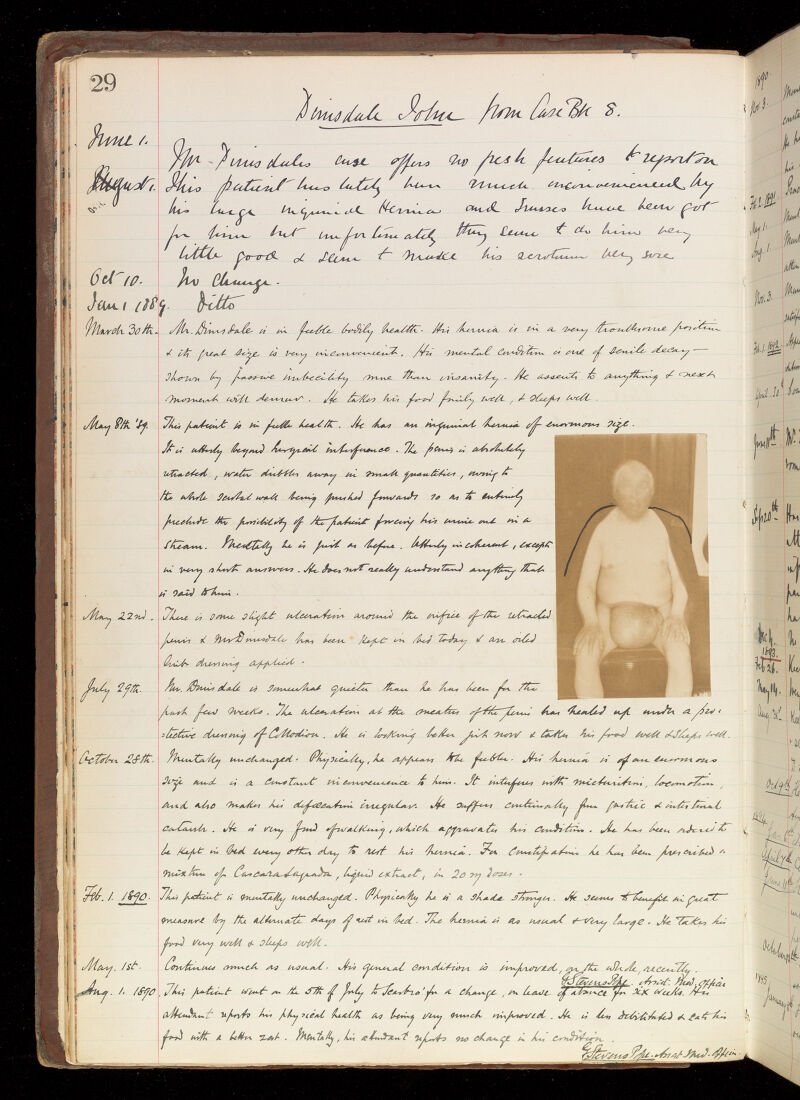 29
Dinsdale John from Case Bk 8.
June 1. Mr. Dinsdales case offers no fresh features to report on
August 1. This patient has lately been much inconvenienced by
his large inguinal Hernia and Trusses have been got
for him but unfortunately they seem to do him very
little good & seem to make his scrotum very sore
Oct 10. No change.
Jan 1 1889. Ditto
March 30th. Mr. Dinsdale is in feeble bodily health. His hernia is in a very troublesome position
& its great size is very inconvenient. His mental condition is one of senile decay -
shown by passive imbecility more than insanity. He assents to anything & next
moment will demur. He takes his food fairly well, & sleeps well.
May 8th '89. This patient is in feeble health. He has an inguinal hernia of enormous size.
It is utterly beyond surgical interference. The penis is absolutely
retracted, water dribbles away in small quantities, owing to
the whole scrotal wall being pushed forwards so as to entirely
preclude the possibility of the patient forcing his urine out in a
stream. Mentally he is just as before. Utterly incoherent, except
in very short answers. He does not really understand anything that
is said to him.
May 22nd. There is some slight ulceration around the orifice of the retracted
penis & Mr Dinsdale has been kept in bed today & an oiled
lint dressing applied.
July 29th. Mr. Dinsdale is somewhat quieter than he has been for the
past few weeks. The ulceration at the meatus of the penis has healed up under a pro-
-tective dressing of Collodion. He is looking better just now & takes his food well & sleeps well.
October 28th. Mentally unchanged. Physically, he appears to be feebler. His hernia is of an enormous
size and is a constant inconvenience to him. It interferes with micturition, locomotion,
and also makes his defaecation irregular. He suffers continually from gastric & intestinal
catarrh. He is very fond of walking, which aggravates his condition. He has been ordered to
be kept in bed every other day to rest his hernia. For Constipation he has been prescribed a
mixture of Cascara Sagrada, liquid extract, in 20 m doses.
Feb. 1. 1890. This patient is mentally unchanged. Physically he is a shade stronger. He seems to benefit in great
measure by the alternate days of rest in bed. The hernia is as usual & very large. He takes his
food very well & sleeps well.
May. 1st. Continues much as usual. His general condition is improved, on the whole, recently.
G Stevens Pope. Assist. Med. Officer
Aug. 1. 1890. This patient went on the 5th of July to Scarbro' for a change, on leave of absence for six weeks. His
attendant reports his physical health as being very much improved. He is less debilitated & eats his
food with a better zest. Mentally, his attendant reports no change in his condition.
G Stevens Pope. Assist. Med. Officer.
1890
Nov. 3.
Feb. 2. 1891
May 1.
Aug. 1.
Nov. 3.
Feb. 1. 1892
April 30
June 11th
Sep 20th
Dec 4.
1893.
Feb 26.
May 14.
Oct 9th